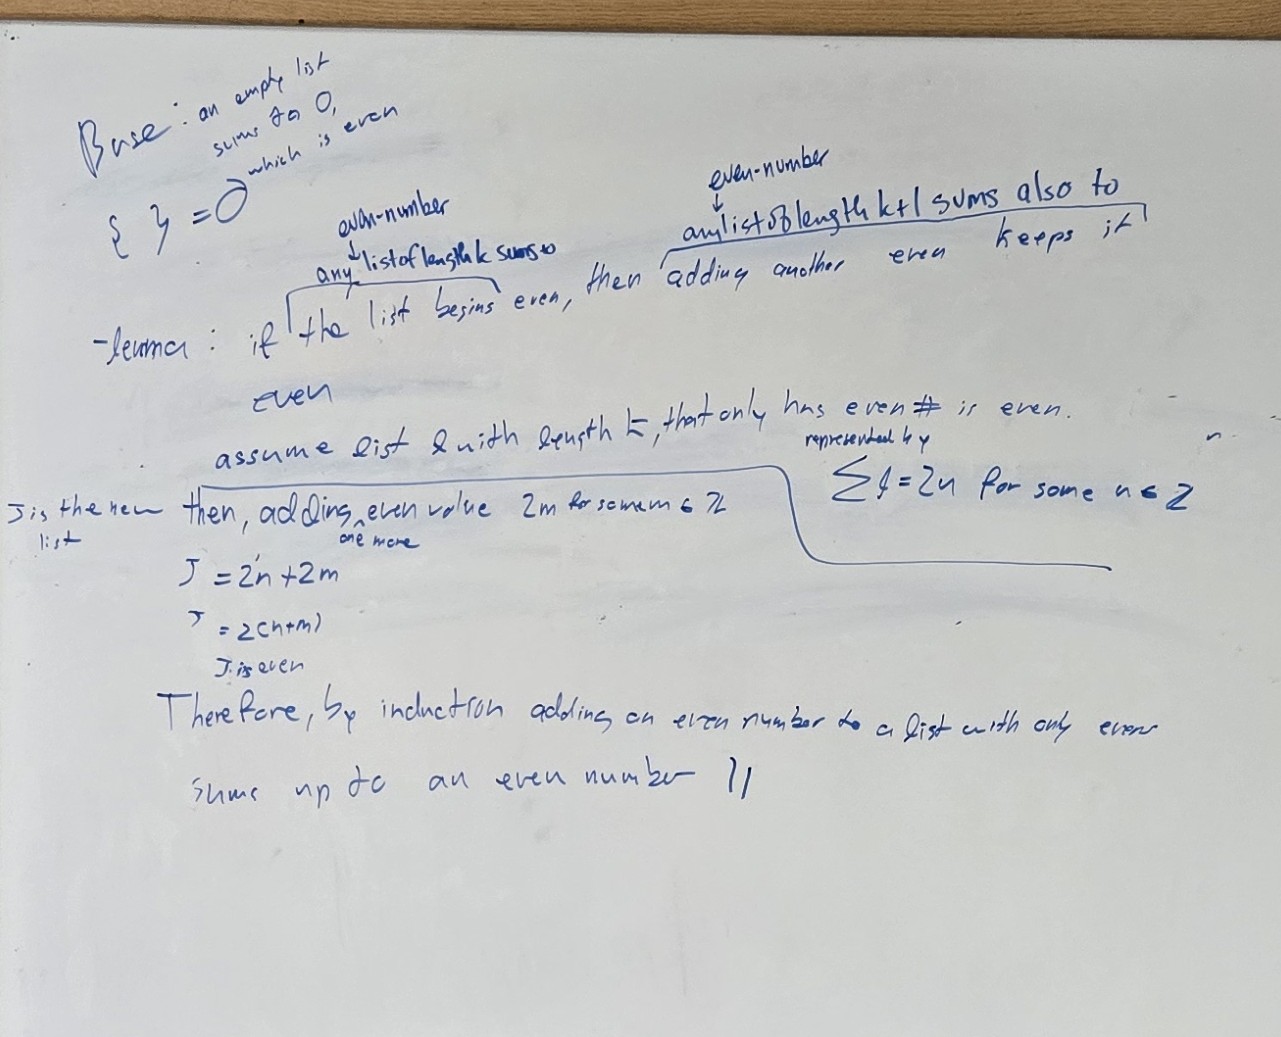 Base: an empty list
sums to 0,
which is even
{ } = 0
even-number
any list of length k sums to
even-number
any list of length k+1 sums also to
-lemma: if the list begins even, then adding another even keeps it
even
assume list l with length k, that only has even # is even.
represented by
∑l = 2n for some n ∈ Z
J is the new
list
then, adding one more even value 2m for some m ∈ Z
J = 2n + 2m
J = 2(n+m)
J is even
Therefore, by induction adding an even number to a list with only evens
sums up to an even number //